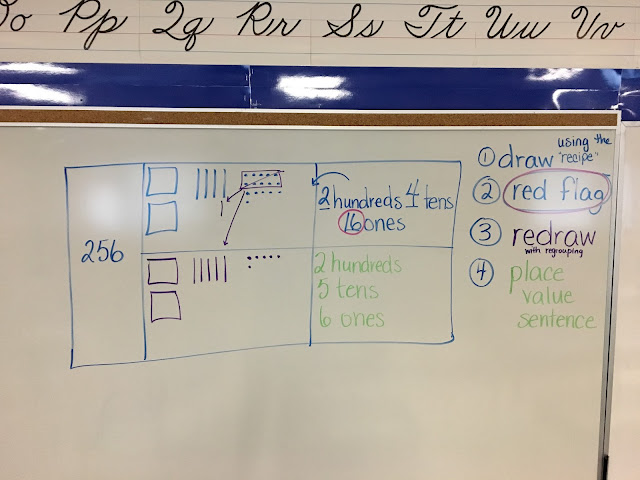 Oo Pp Qq Rr Ss Tt Uu Vv
256
1
2 hundreds 4 tens
16 ones
2 hundreds
5 tens
6 ones
1 draw using the "recipe"
2 red flag
3 redraw
with regrouping
4 place
value
sentence